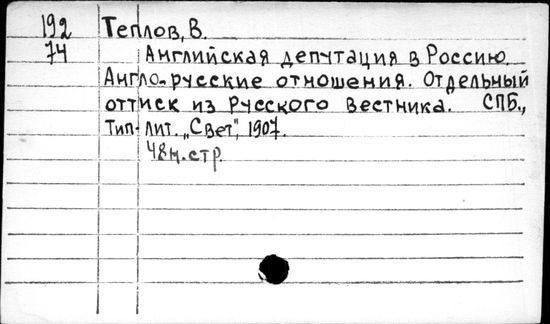 192 Теплов, В.
74 Английская депутация в Россию.
Англо-русские отношения. Отдельный
оттиск из Русского Вестника. СПБ.,
Тип-лит. „Свет", 1907.
48н.стр.